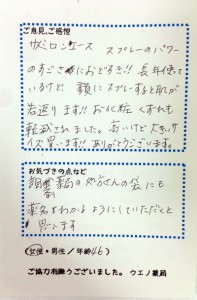 ご意見、ご感想
サミロンエース スプレーのパワー
のすごさにおどろき!! 長年使って
いるけど、顔にスプレーすると肌が
若返ります!! お化粧くずれも
軽減されました。高いけど大きいサ
イズ買います!! ありがとうございます。
お気づきの点など
調剤薬局の処方さんの袋にも
薬名をわかるようにしていただくと
思います
(女性・男性/年齢46)
ご協力有難うございました。 ウエノ薬局